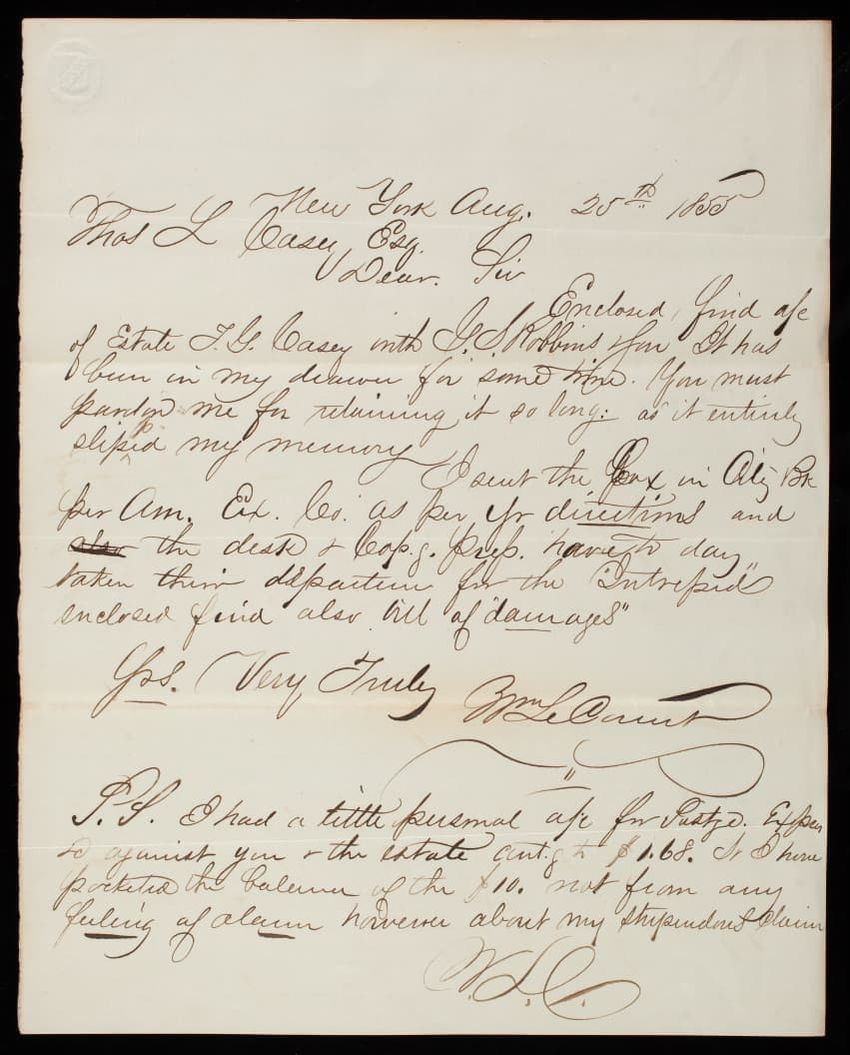 New York Aug. 25th 1855
Thos L Casey Esq.
Dear. Sir
Enclosed, find a/c
of Estate T. G. Casey with G. S. Robbins & Son It has
been in my drawer for some time. You must
pardon me for retaining it so long: as it entirely
sliped my memory
I sent the Box in City Bk
per Am. Ex. Co. as per yr directions and
the desk & Cop.g. prep. have to day
taken their departure for the "Intrepid"
enclosed find also bill of "damages"
Yrs. Very Truly
Wm Le Count
P.S. I had a little personal a/c for Postge. Expen
&c against you & the estate amt.g to $1.68. So I have
pocketed the balance of the $10. not from any
feeling of alarm however about my stupendous claim
W. L. C.